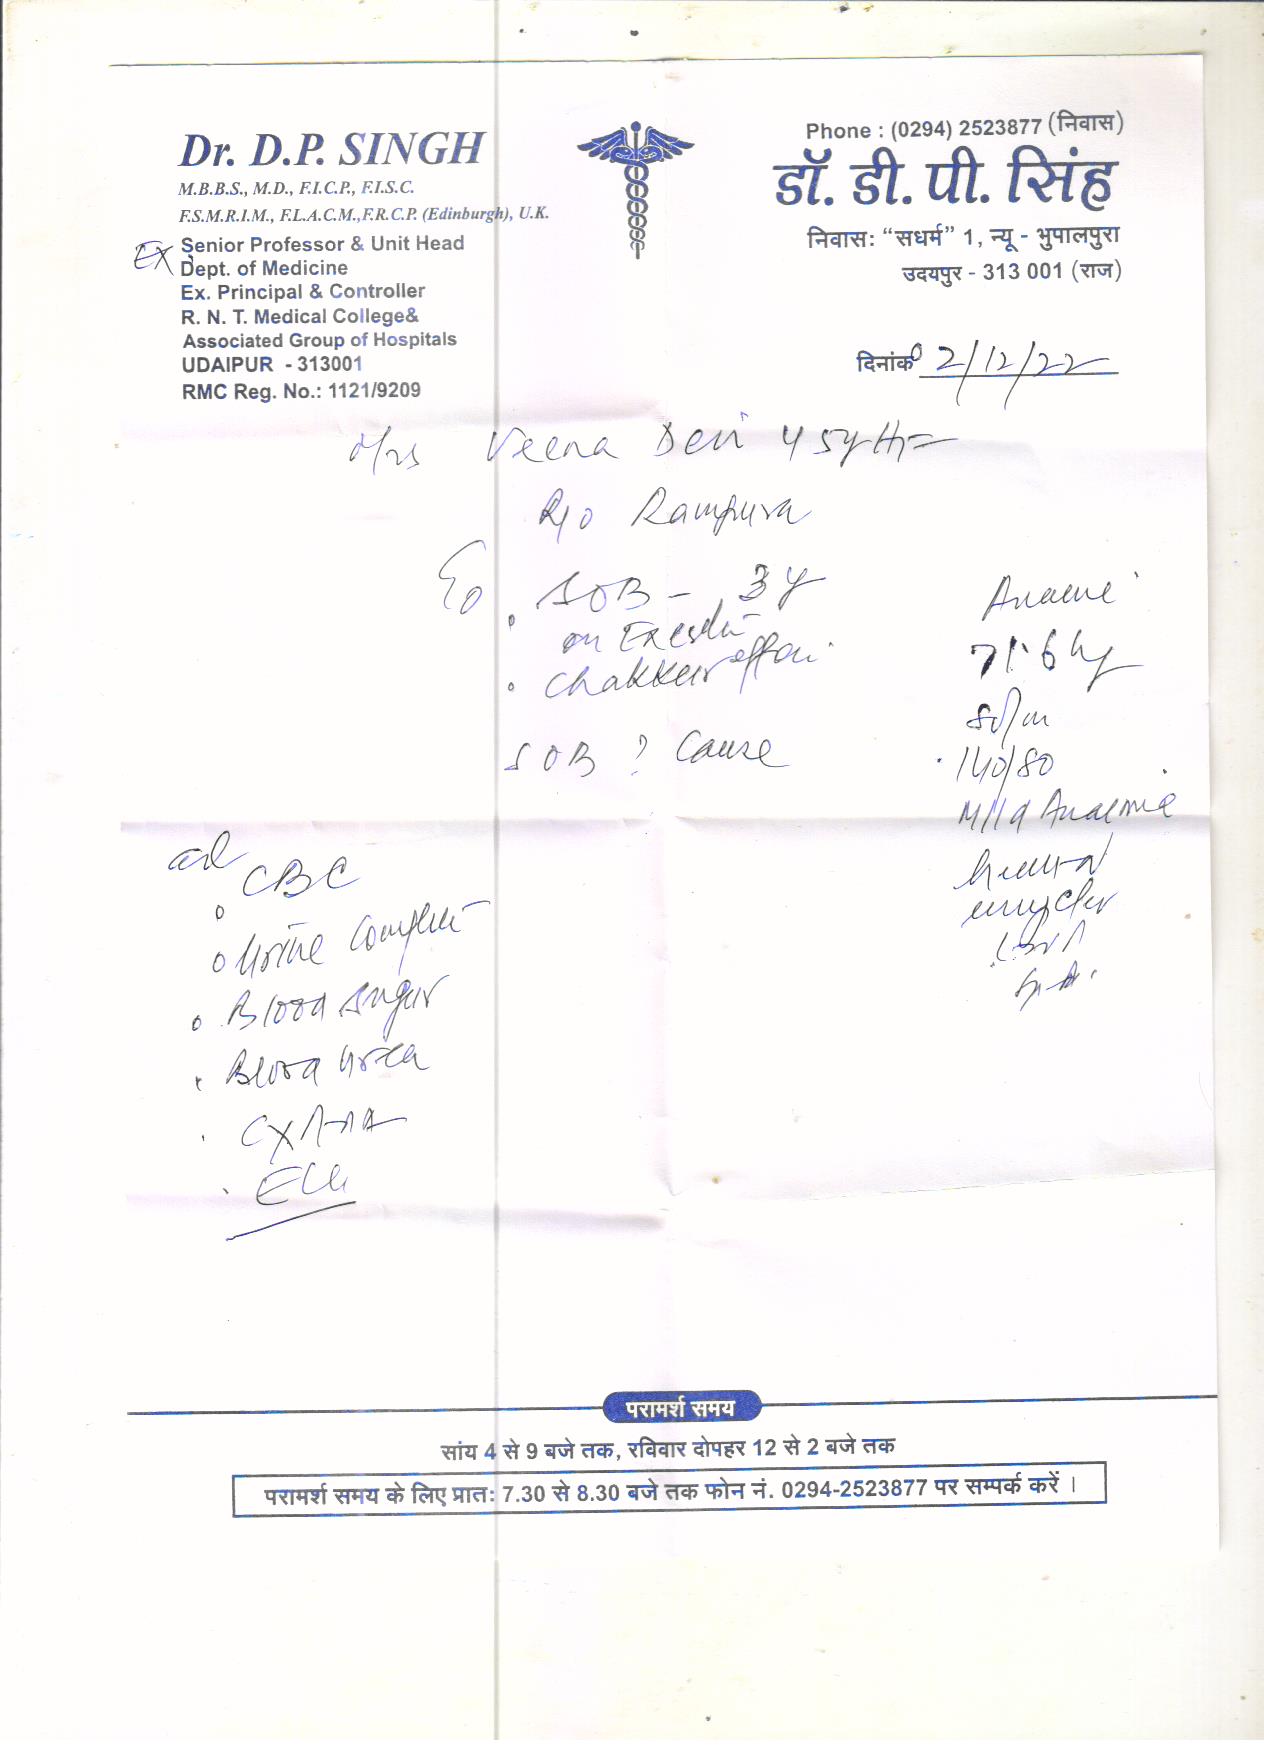 Dr. D.P. SINGH
M.B.B.S., M.D., F.I.C.P., F.I.S.C.
F.S.M.R.I.M., F.L.A.C.M.,F.R.C.P. (Edinburgh), U.K.
Ex Senior Professor & Unit Head
Dept. of Medicine
Ex. Principal & Controller
R. N. T. Medical College&
Associated Group of Hospitals
UDAIPUR - 313001
RMC Reg. No.: 1121/9209
Phone : (0294) 2523877 (निवास)
डॉ. डी. पी. सिंह
निवास: “सधर्म” 1, न्यू - भुपालपुरा
उदयपुर - 313 001 (राज)
दिनांक 02/12/22
Mrs Veena Devi 45y
R/o Rampura
SOB - 3y
on
Chakkar
SOB ? Cause
71.6 kg
80/m
140/80
Mild Anaemia
CBC
Urine Complete
Blood Sugar
Blood Urea
ECG
परामर्श समय
सांय 4 से 9 बजे तक, रविवार दोपहर 12 से 2 बजे तक
परामर्श समय के लिए प्रात: 7.30 से 8.30 बजे तक फोन नं. 0294-2523877 पर सम्पर्क करें ।